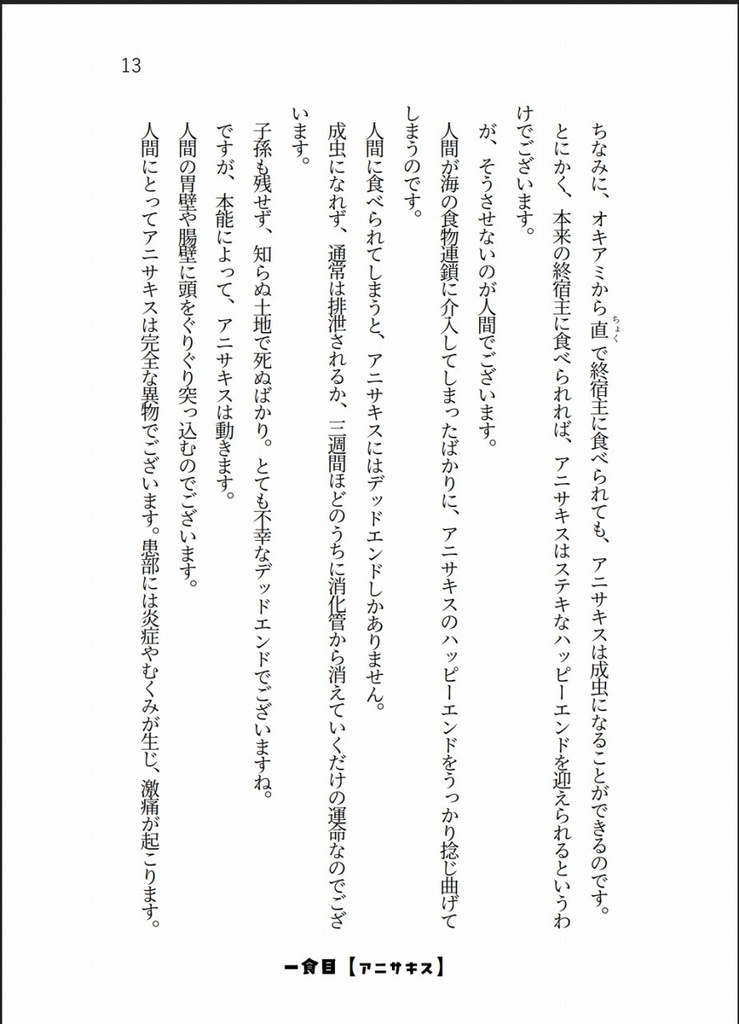 13
ちなみに、オキアミから直で終宿主に食べられても、アニサキスは成虫になることができるのです。
ちょく
とにかく、本来の終宿主に食べられれば、アニサキスはステキなハッピーエンドを迎えられるというわ
けでございます。
が、そうさせないのが人間でございます。
人間が海の食物連鎖に介入してしまったばかりに、アニサキスのハッピーエンドをうっかり捻じ曲げて
しまうのです。
人間に食べられてしまうと、アニサキスにはデッドエンドしかありません。
成虫になれず、通常は排泄されるか、三週間ほどのうちに消化管から消えていくだけの運命なのでござ
います。
子孫も残せず、知らぬ土地で死ぬばかり。とても不幸なデッドエンドでございますね。
ですが、本能によって、アニサキスは動きます。
人間の胃壁や腸壁に頭をぐりぐり突っ込むのでございます。
人間にとってアニサキスは完全な異物でございます。患部には炎症やむくみが生じ、激痛が起こります。
一食目【アニサキス】